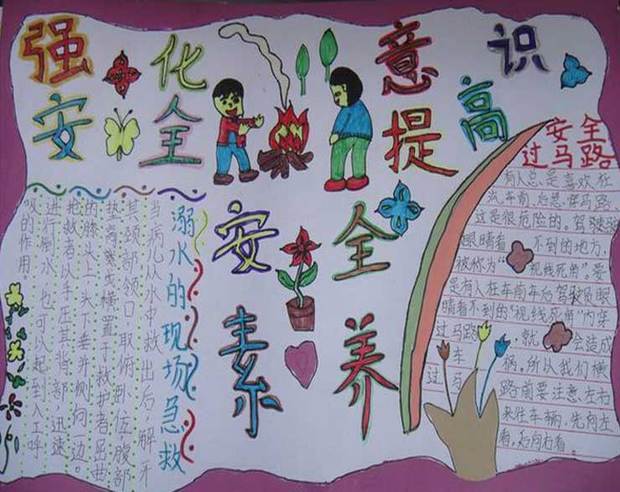 强化
安全
意识
提高
安全
素养
溺水的现场急救
当病儿从水中救出后，解开
其颈部领口取俯卧位，腹部
垫高或横置于救护者屈曲
的膝头上，头下垂并侧向一边。
抢救者以手压其背部，迅速
进行倒水，也可以起到人工呼
吸的作用。
安全
过马路
有人总是喜欢在
汽车前、后急穿马路
这是很危险的。驾驶员
眼睛看不到的地方，
被称为“视线死角”。若
是有人在车前车后驾驶员眼
睛看不到的“视线死角”内穿
过马路，就会造成
车祸。所以我们横
过马路前要注意左右
来往车辆，先向左
看，后向右看。